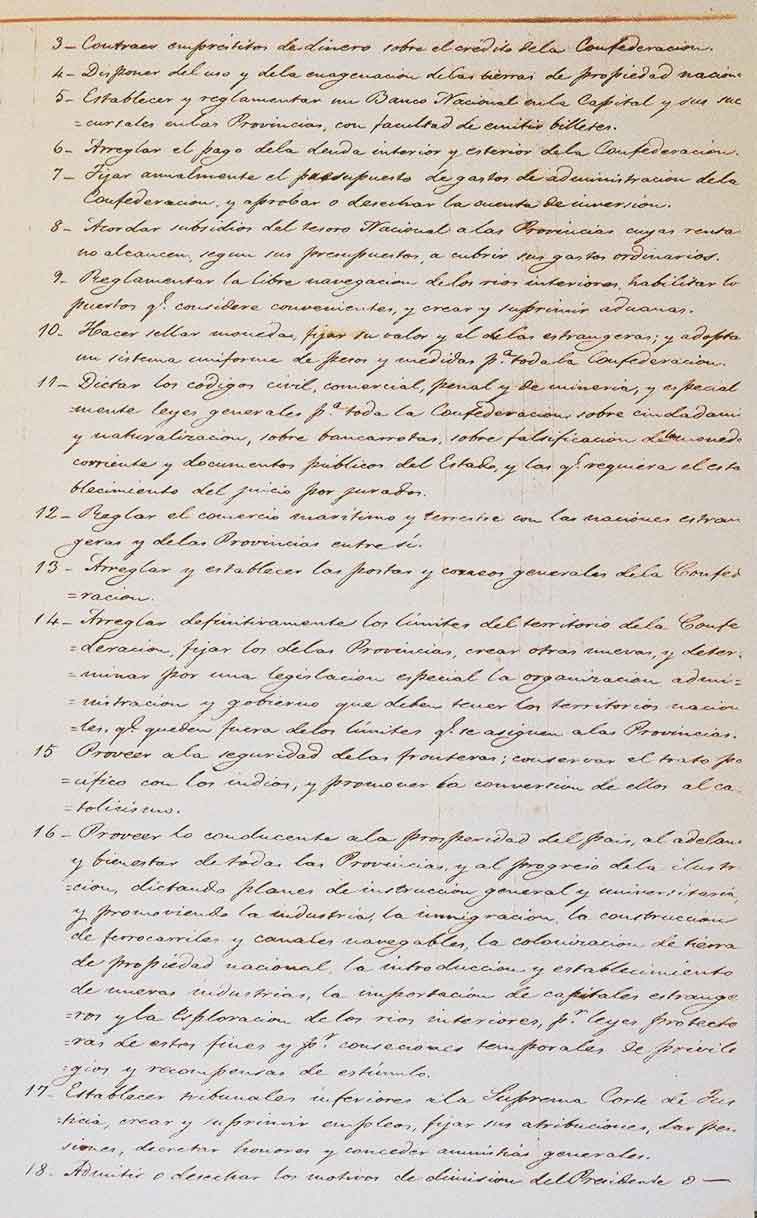 3- Contraer empréstitos de dinero sobre el crédito dela Confederacion.
4- Disponer del uso y dela enagenacion delas tierras de propiedad nacion
5- Establecer y reglamentar un Banco Nacional enla Capital y sus suc
=cursales enlas Provincias, con facultad de emitir billetes.
6- Arreglar el pago dela deuda interior y esterior dela Confederacion.
7- Fijar anualmente el presupuesto de gastos de administracion dela
Confederacion, y aprobar o desechar la cuenta de inversion.
8- Acordar subsidios del tesoro Nacional alas Provincias cuyas renta
no alcancen, segun sus presupuestos, a cubrir sus gastos ordinarios.
9- Reglamentar la libre navegacion delos rios interiores, habilitar lo
puertos q.e considere convenientes, y crear y suprimir aduanas.
10- Hacer sellar monedas, fijar su valor y el delas estrangeras; y adopta
un sistema uniforme de pesos y medidas p.a toda la Confederacion.
11- Dictar los códigos civil, comercial, penal y de mineria, y especial
=mente leyes generales p.a toda la Confederacion sobre ciudadani
y naturalizacion, sobre bancarrotas, sobre falsificacion de la moned
corriente y documentos públicos del Estado, y las q.e requiera el esta
blecimiento del juicio por jurados.
12- Reglar el comercio marítimo y terrestre con las naciones estran
geras y delas Provincias entre sí.
13- Arreglar y establecer las postas y correos generales dela Confed
=racion.
14- Arreglar definitivamente los límites del territorio dela Confe
=deracion, fijar los delas Provincias, crear otras nuevas, y deter-
=minar por una legislacion especial la organizacion admi=
=nistracion y gobierno que deben tener los territorios nacion
=les, q.e queden fuera delos límites q.e se asignen alas Provincias.
15 Proveer ala seguridad delas fronteras; conservar el trato pa
=cífico con los indios, y promover la conversion de ellos al ca-
=tolicismo.
16- Proveer lo conducente ala prosperidad del pais, al adelan
y bienestar de todas las Provincias, y al progreso dela ilustr
=cion, dictando planes de instruccion general y universitaria,
y promoviendo la industria, la inmigracion, la construccion
de ferrocarriles y canales navegables, la colonizacion de tierra
de propiedad nacional, la introduccion y establecimiento
de nuevas industrias, la importacion de capitales estrange
=ros y la esploracion de los rios interiores, p.r leyes protecto
=ras de estos fines y p.r conseciones temporales de privile
=gios y recompensas de estímulo.
17- Establecer tribunales inferiores ala Suprema Corte de Jus
ticia, crear y suprimir empleos, fijar sus atribuciones, dar pen-
siones, decretar honores y conceder amnistias generales.
18- Admitir o desechar los motivos de dimision del Presidente o —